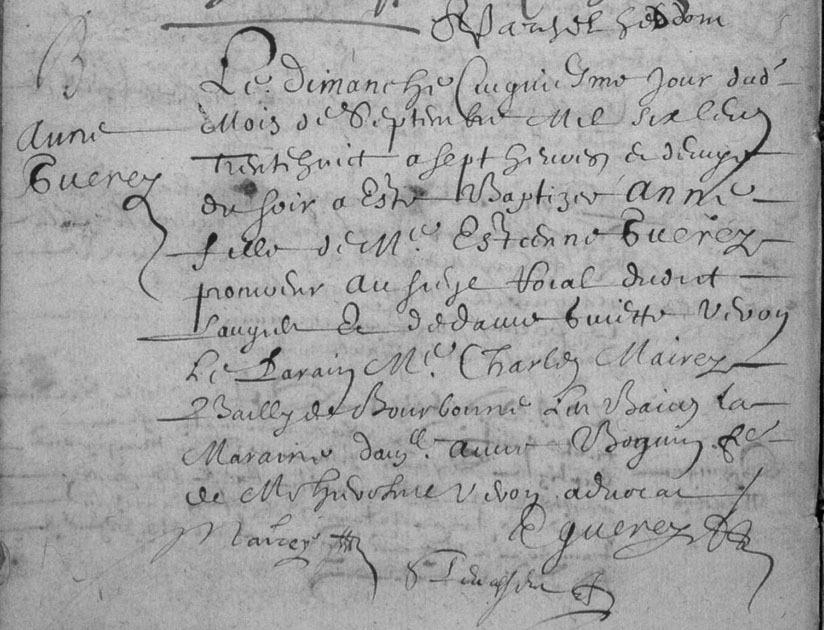 Anne
Guerey
Le Dimanche Cinquiesme jour dud
Mois de Septembre Mil six cens
Trentehuict a sept heures et demye
du soir a Esté Baptizée Anne
fille de Me Estienne Guerey
procureur au siege Roial dudict
Langres Et de dame Guiette Vevoy
Le Parain Me Charles Mairey
Bailly de Bourbonne les Bains la
Maraine dam.lle Anne Boguin fe
de Me Hierosme Vevoy advocat
Mairey
E guerey